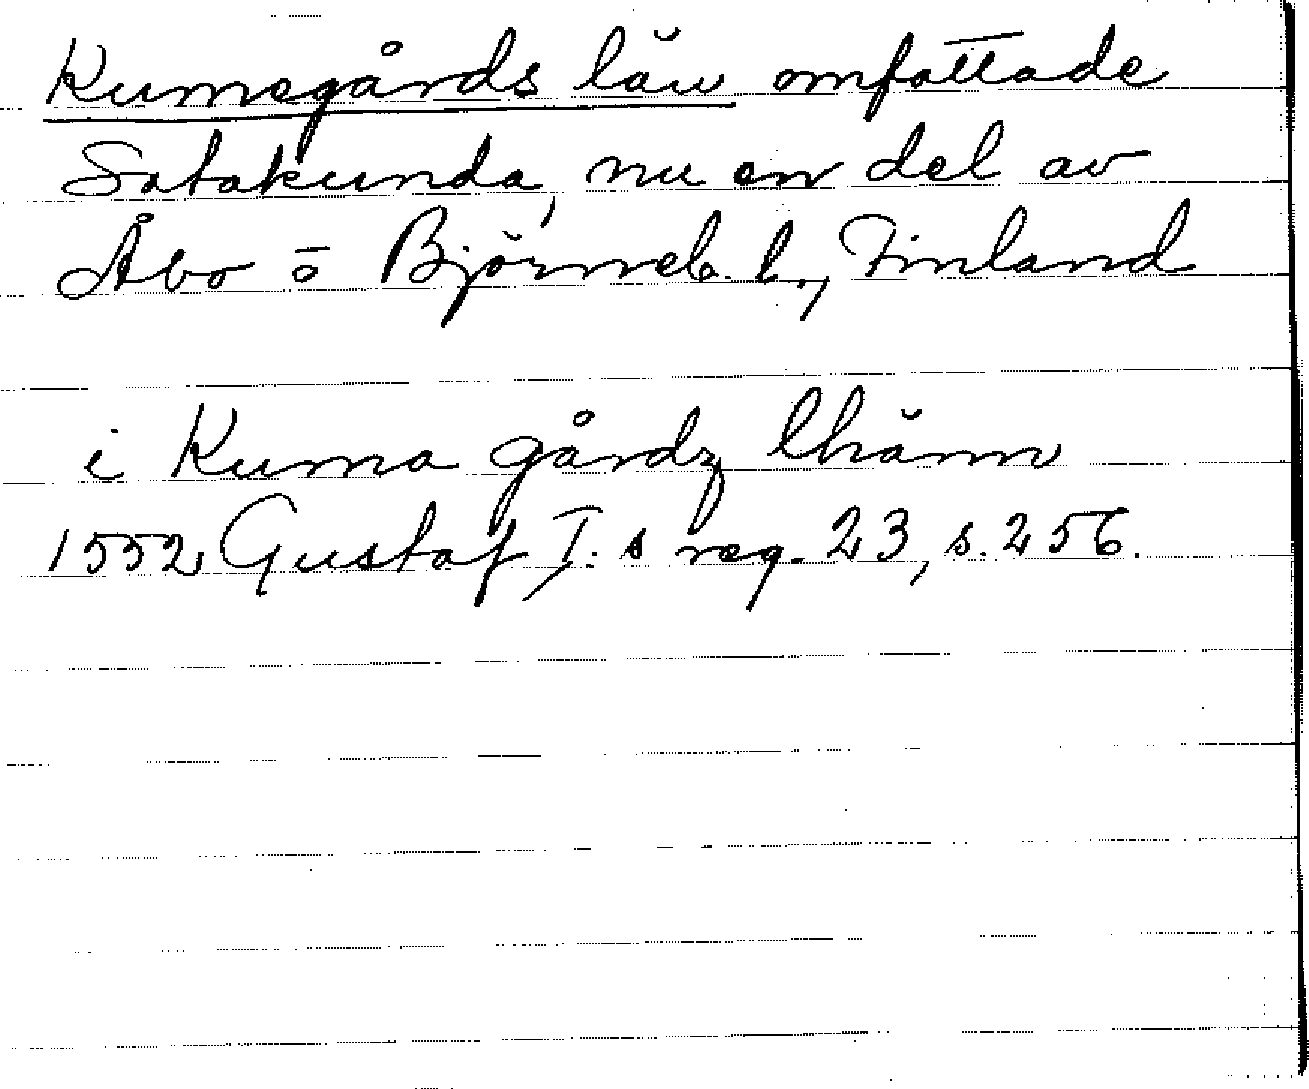 Kumegårds län omfattade
Satakunda, nu en del av
Åbo o Björneb. l., Finland
i Kuma gårdz lhänn
1552 Gustaf I:s reg. 23, s. 256.